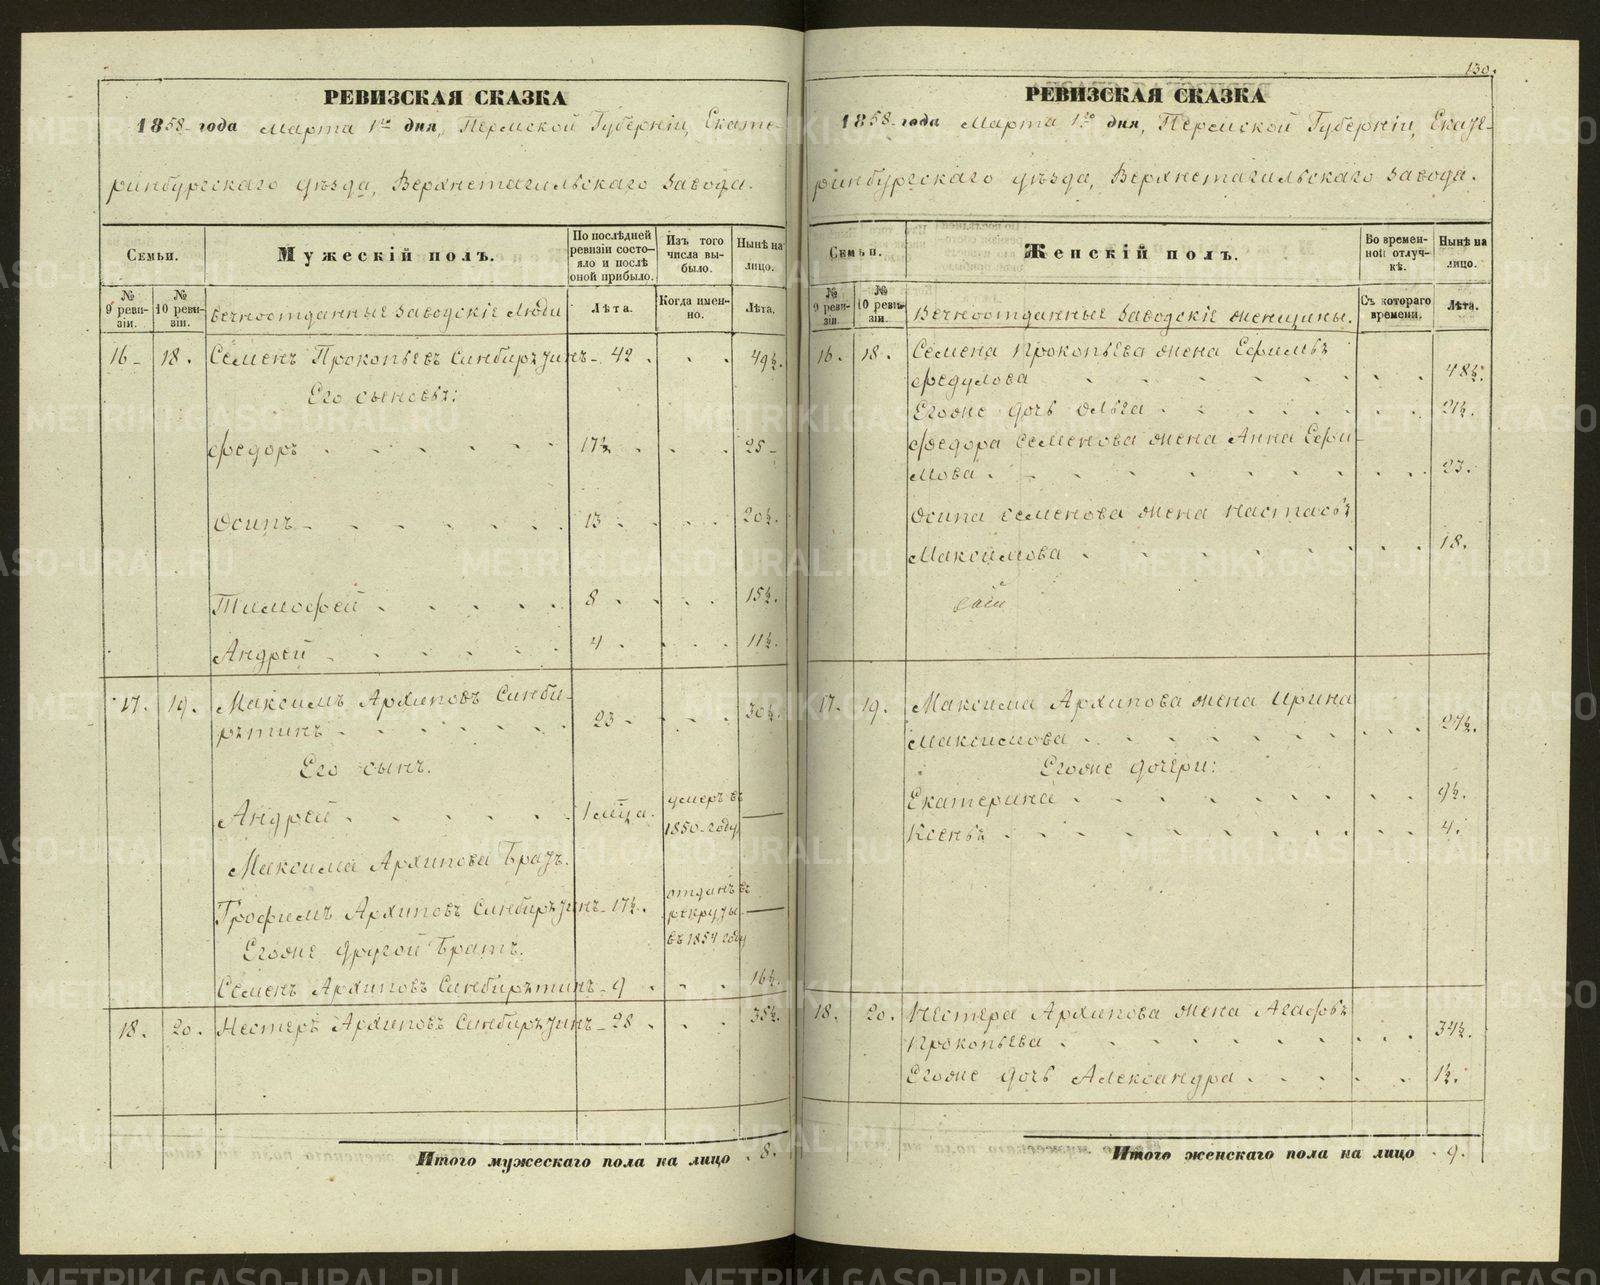 РЕВИЗСКАЯ СКАЗКА
1858 года Марта 1го дня, Пермской Губерніи, Екате-
ринбургскаго уѣзда, Верхнетагильскаго завода.
Семьи.
Мужескій полъ.
По послѣдней ревизіи состо- яло и послѣ оной прибыло.
Изъ того числа вы- было.
Нынѣ на лицо.
№ 9 реви- зіи.
№ 10 реви- зіи.
Вечноотданные заводскіе люди
Лѣта.
Когда имен- но.
Лѣта.
16 18. Семенъ Прокопьевъ Синбирятинъ 42 49½.
Его сыновья:
Федоръ 17½ 25
Осипъ 13 20½.
Тимофей 8 15½.
Андрей 4 11½.
17. 19. Максимъ Архиповъ Синби-
рятинъ 23 30½.
Его сынъ.
Андрей 1 мѣца. умеръ въ 1850 году —
Максима Архипова Братъ.
Трофимъ Архиповъ Синбирятинъ 17½. отданъ въ рекруты въ 1854 году —
Егоже другой Братъ.
Семенъ Архиповъ Синбирятинъ 9 16½.
18. 20. Нестеръ Архиповъ Синбирятинъ 28 35½.
Итого мужескаго пола на лицо 8.
130.
РЕВИЗСКАЯ СКАЗКА
1858 года Марта 1го дня, Пермской Губерніи, Екате-
ринбургскаго уѣзда, Верхнетагильскаго завода.
Семьи.
Женскій полъ.
Во времен- ной отлуч- кѣ.
Нынѣ на лицо.
№ 9 реви- зіи.
№ 10 реви- зіи.
Вечноотданные заводскіе женщины.
Съ котораго времени.
Лѣта.
16. 18. Семена Прокопьева жена Ефимья
Федулова 48½.
Егоже дочь Ольга 21½.
Федора Семенова жена Анна Ефи-
мова 23.
Осипа Семенова жена Настасья
Максимова 18.
17. 19. Максима Архипова жена Ирина
Максимова 27½.
Егоже дочери:
Екатерина 9½.
Ксенья 4.
18. 20. Нестера Архипова жена Агафья
Прокопьева 34½.
Егоже дочь Александра 1½.
Итого женскаго пола на лицо 9.
METRIKI.GASO-URAL.RU